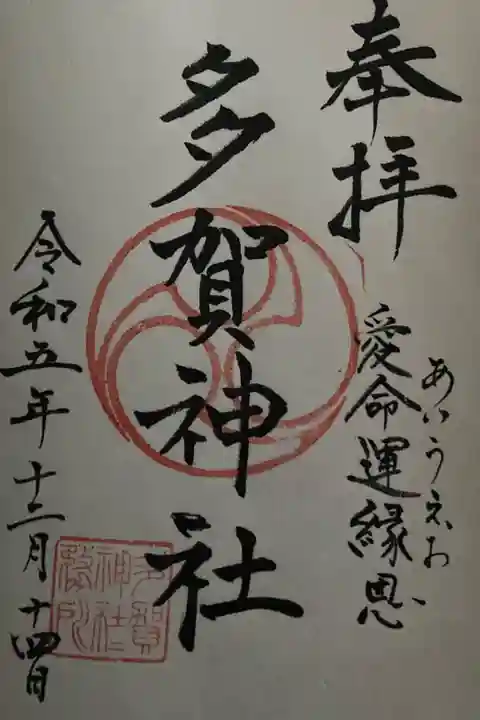 奉拝
愛命運縁恩
あいうえお
多賀神社
令和五年十二月十四日
多賀
神社